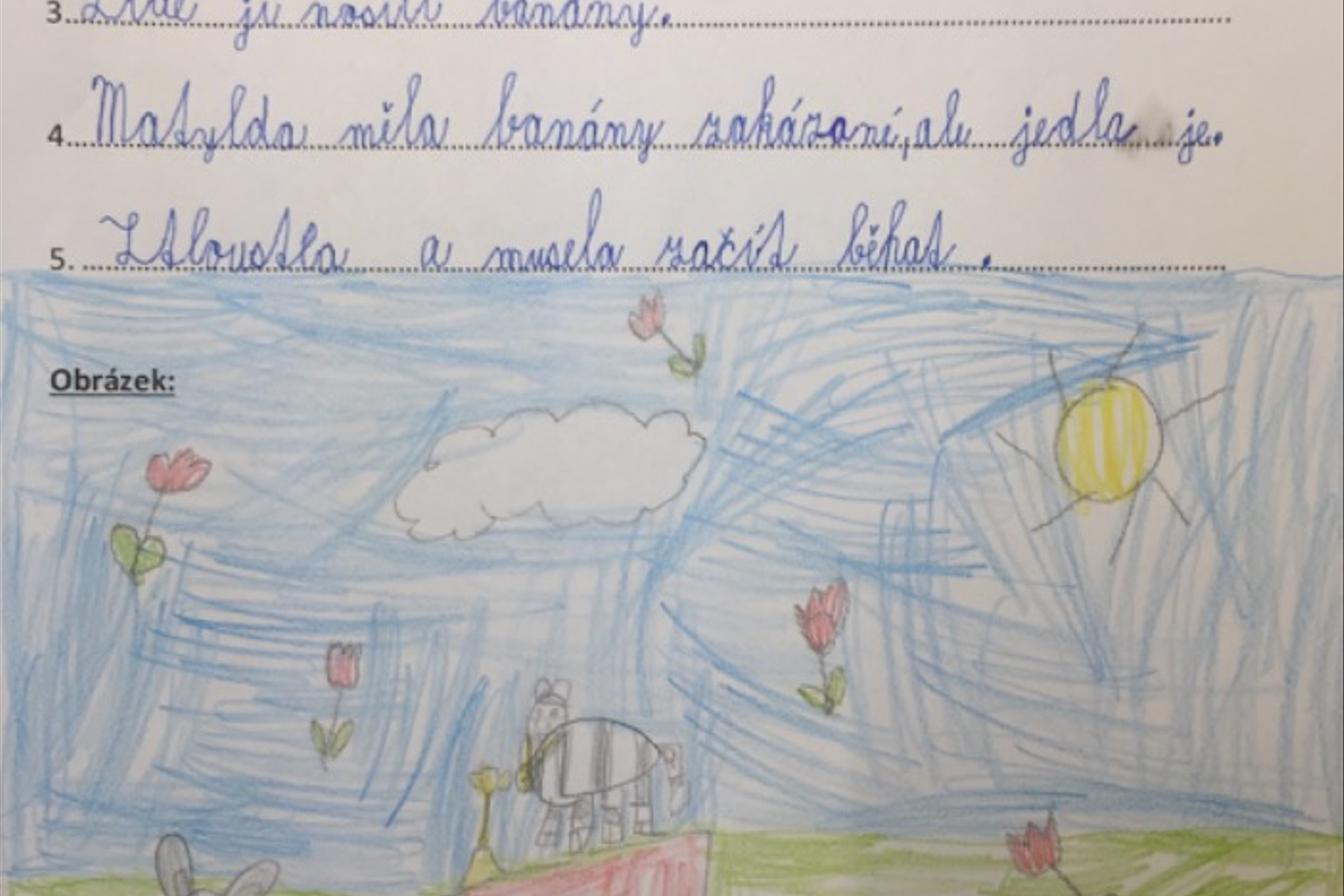 3. Lidé jí nosili banány.
4. Matylda měla banány zakázaní, ale jedla je.
5. Ztloustla a musela začít běhat.
Obrázek: